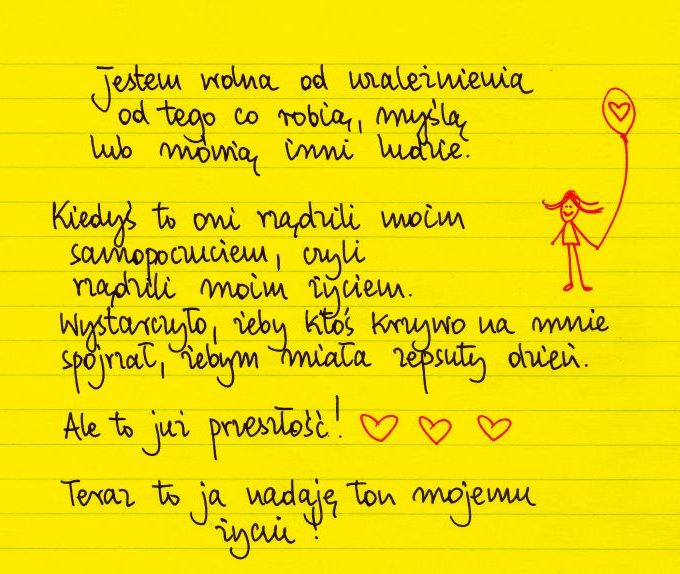 Jestem wolna od uzależnienia
od tego co robią, myślą
lub mówią inni ludzie.
Kiedyś to oni rządzili moim
samopoczuciem, czyli
rządzili moim życiem.
Wystarczyło, żeby ktoś krzywo na mnie
spojrzał, żebym miała zepsuty dzień.
Ale to już przeszłość!
Teraz to ja nadaję ton mojemu
życiu!